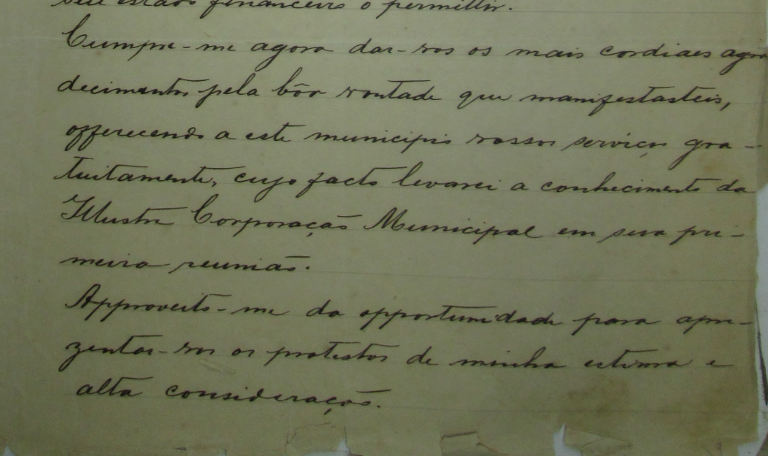 seu estado financeiro o permittir.
Cumpre-me agora dar-vos os mais cordiaes agra
decimentos pela bôa vontade que manifestasteis,
offerecendo a este municipio vossos serviços gra-
tuitamente, cujo facto levarei a conhecimento da
Illustre Corporação Municipal em sua pri-
meira reunião.
Approveito-me da opportunidade para apre-
zentar-vos os protestos de minha estima e
alta consideração.